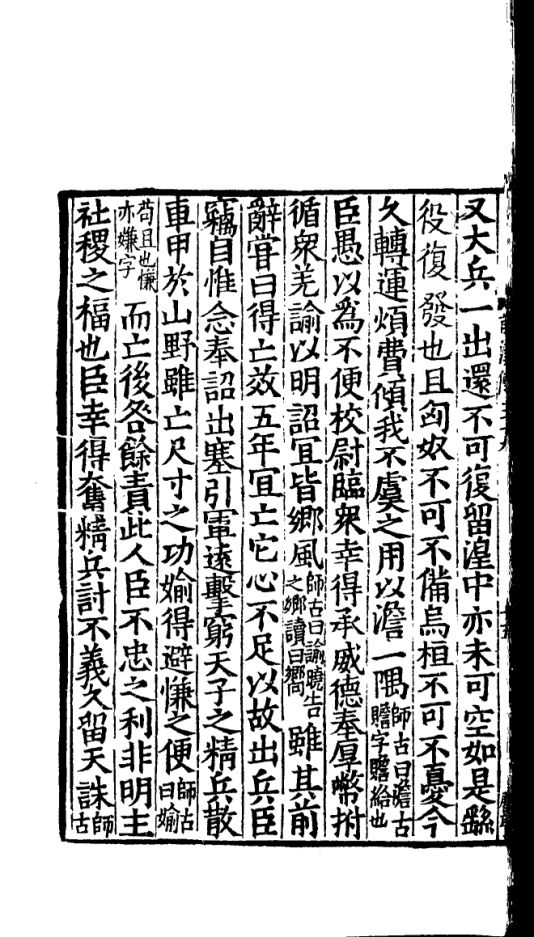 又大兵一出還不可復留湟中亦未可空如是繇
役復發也且匈奴不可不備烏桓不可不憂今
久轉運煩費傾我不虞之用以澹一隅師古曰澹古贍字贍給也
臣愚以爲不便校尉臨衆幸得承威德奉厚幣拊
循衆羌諭以明詔冝皆鄉風師古曰諭曉告之鄉讀曰嚮雖其前
辭甞曰得亡效五年冝亡它心不足以故出兵臣
竊自惟念奉詔出塞引軍遠擊窮天子之精兵散
車甲於山野雖亡尺寸之功媮得避慊之便師古曰媮
苟且也慊亦嫌字而亡後咎餘責此人臣不忠之利非明主
社稷之福也臣幸得奮精兵討不義久留天誅師古